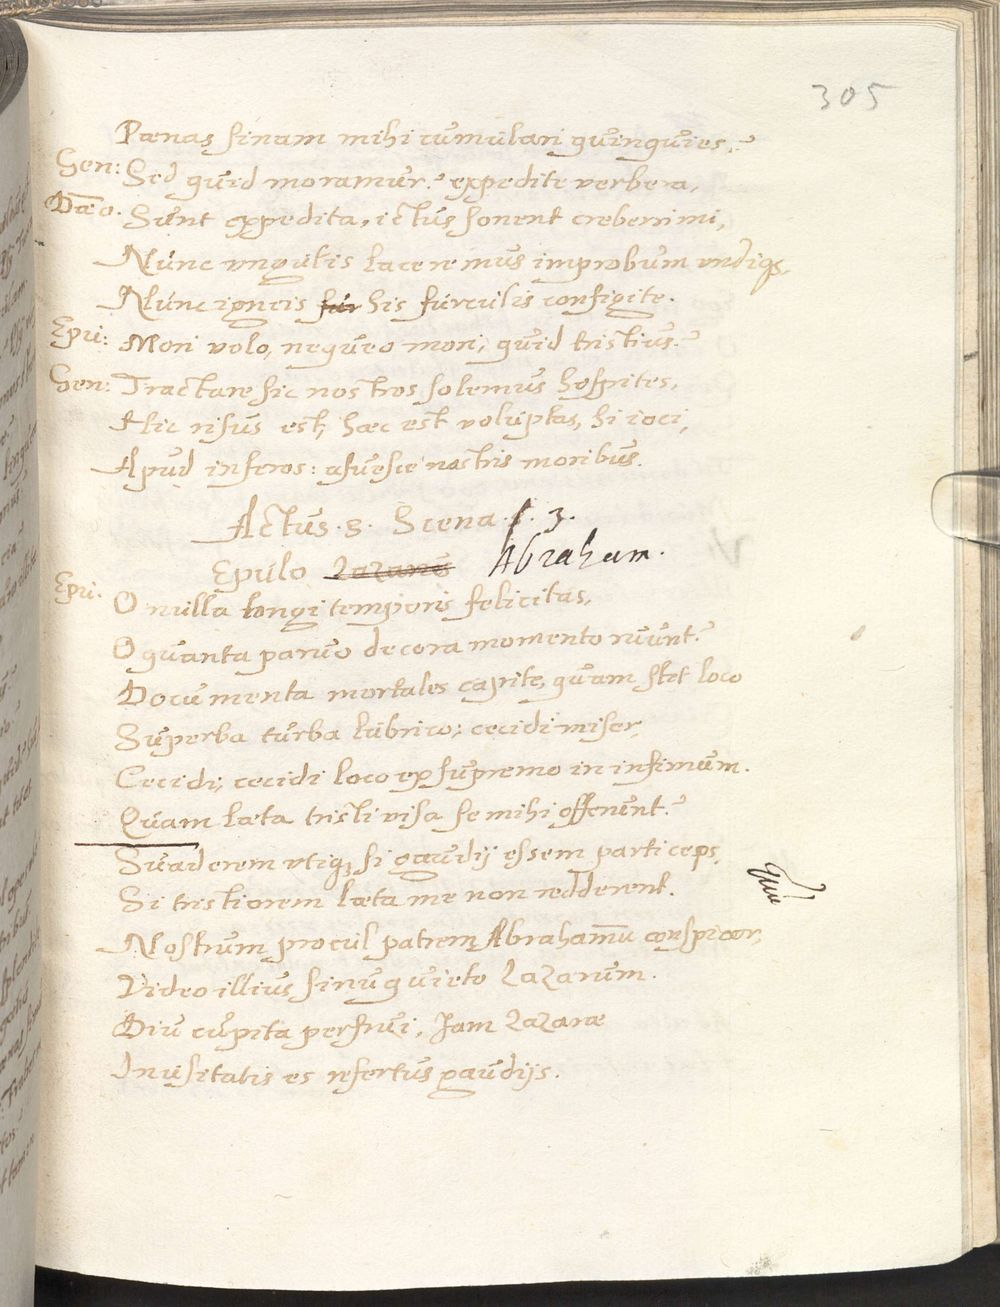 305
Pœnas sinam mihi cumulari quinquies?
Gen: Sed quid moramur? expedite verbera,
Dæo. Sunt expedita, ictus sonent creberrimi,
Nunc vngulis laceremus improbum vndiq3,
Nunc igneis fur his furculis configite.
Epu: Mori volo, nequeo mori, quid tristius?
Gen: Tractare sic nostros solemus hospites,
Hic risus est, hæc est voluptas, hi ioci,
Apud inferos: assuesce nostris moribus.
Actus. 5. Scena. 3.
Epulo Lazarus Abraham.
Epu. O nulla longi temporis felicitas,
O quanta paruo decora momento ruunt?
Documenta mortales capite, quam stet loco
Superba turba lubrico; cecidi miser,
Cecidi, cecidi loco ex supremo in infimum.
Quam læta tristi visa se mihi offerunt?
Suaderem vtiq3 si gaudij essem particeps,
Si tristiorem læta me non redderent.
Nostrum procul patrem Abrahamu conspicor,
Video illius sinu quieto Lazarum.
Diu cupita perfrui, Jam Lazare
Inusitatis es refertus gaudijs.